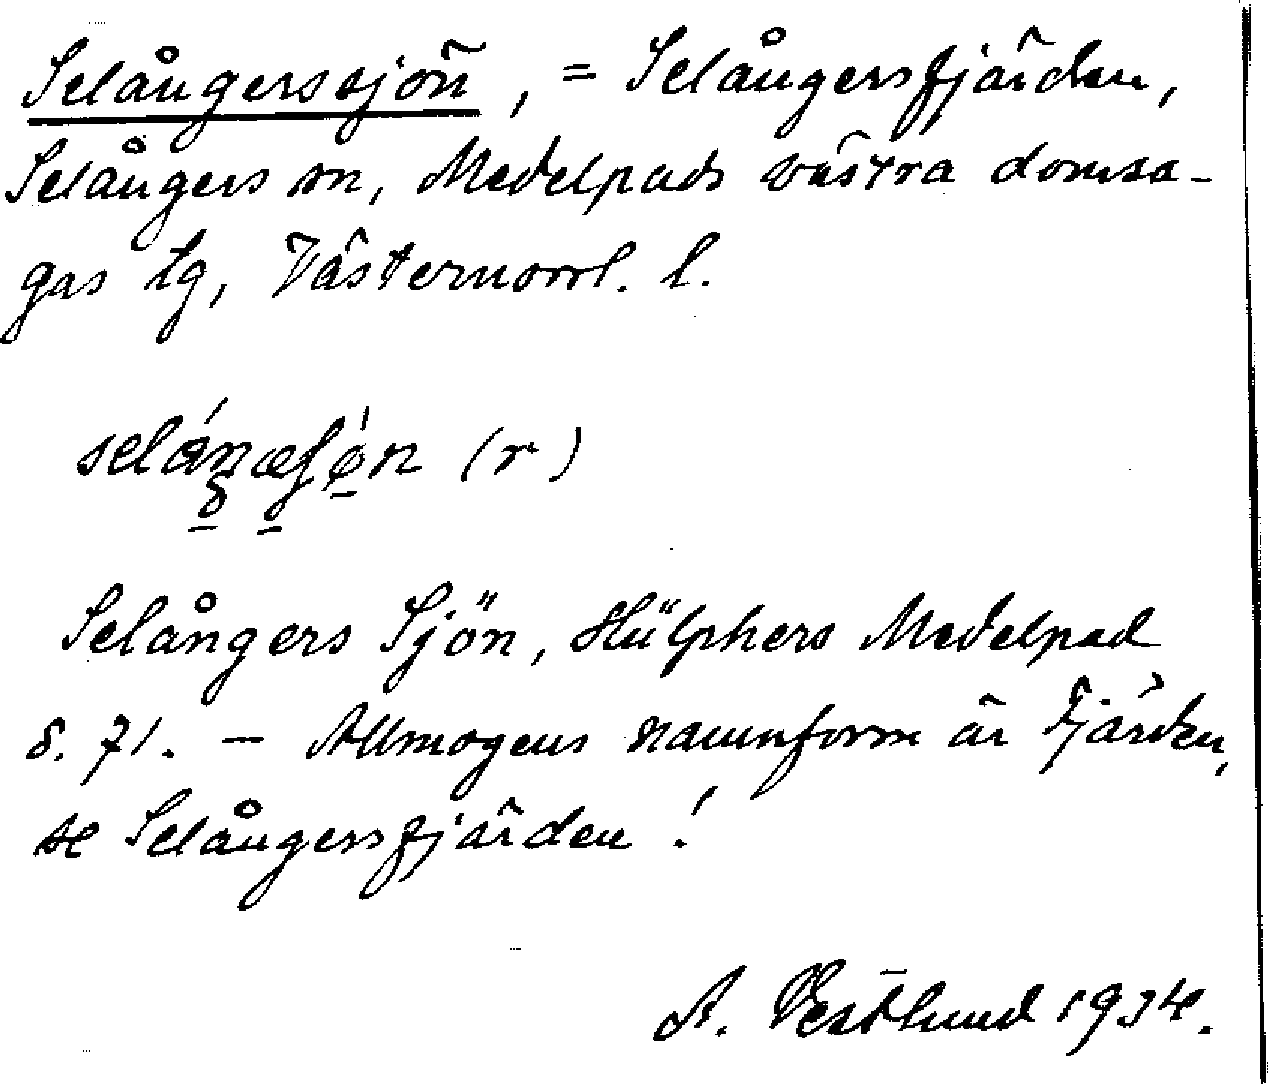 Selångerssjön, = Selångersfjärden,
Selångers sn, Medelpads västra domsa-
gas tg, Västernorrl. l.
(r)
Selångers Sjön, Hülphers Medelpad
s. 71. — Allmogens namnform är Fjärden,
se Selångersfjärden!
A. Vestlund 1934.